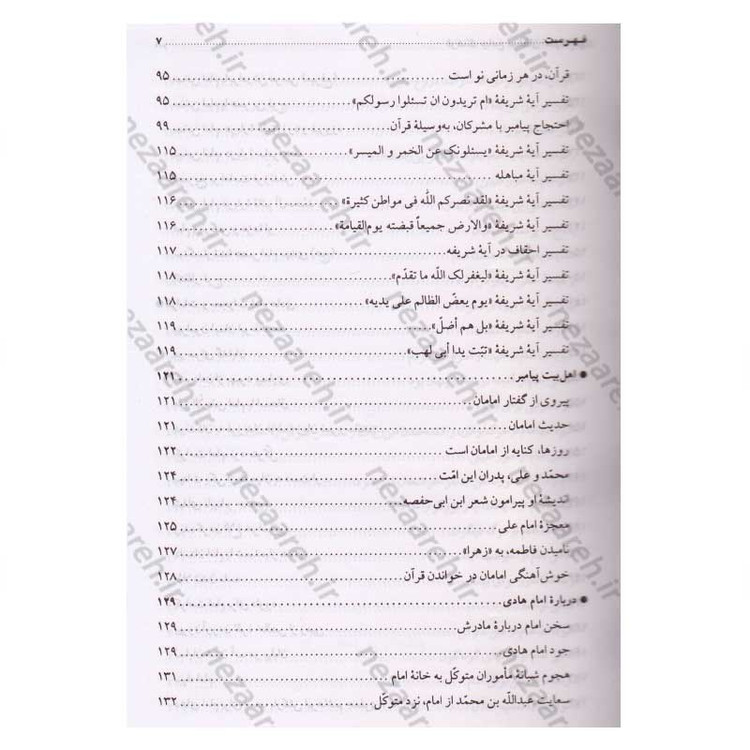 فهرست ................ ۷
قرآن، در هر زمانی نو است ................ ۹۵
تفسیر آیهٔ شریفهٔ «ام تریدون ان تسئلوا رسولکم» ................ ۹۵
احتجاج پیامبر با مشرکان، به‌وسیلهٔ قرآن ................ ۹۹
تفسیر آیهٔ شریفهٔ «یسئلونک عن الخمر و المیسر» ................ ۱۱۵
تفسیر آیهٔ مباهله ................ ۱۱۵
تفسیر آیهٔ شریفهٔ «لقد نصرکم اللّه فی مواطن کثیرة» ................ ۱۱۶
تفسیر آیهٔ شریفهٔ «والارض جمیعاً قبضته یوم‌القیامة» ................ ۱۱۶
تفسیر احقاف در آیهٔ شریفه ................ ۱۱۷
تفسیر آیهٔ شریفهٔ «لیغفرلک اللّه ما تقدّم» ................ ۱۱۸
تفسیر آیهٔ شریفهٔ «یوم یعضّ الظالم علی یدیه» ................ ۱۱۸
تفسیر آیهٔ شریفهٔ «بل هم أضلّ» ................ ۱۱۹
تفسیر آیهٔ شریفهٔ «تبّت یدا أبی لهب» ................ ۱۱۹
● اهل‌بیت پیامبر ................ ۱۲۱
پیروی از گفتار امامان ................ ۱۲۱
حدیث امامان ................ ۱۲۱
روزها، کنایه از امامان است ................ ۱۲۲
محمّد و علی، پدران این امّت ................ ۱۲۴
اندیشهٔ او پیرامون شعر ابن ابی‌حفصه ................ ۱۲۴
معجزهٔ امام علی ................ ۱۲۵
نامیدن فاطمه، به «زهرا» ................ ۱۲۷
خوش‌آهنگی امامان در خواندن قرآن ................ ۱۲۸
● دربارهٔ امام هادی ................ ۱۲۹
سخن امام دربارهٔ مادرش ................ ۱۲۹
جود امام هادی ................ ۱۲۹
هجوم شبانهٔ مأموران متوکّل به خانهٔ امام ................ ۱۳۱
سعایت عبداللّه بن محمّد از امام، نزد متوکّل ................ ۱۳۲
nezaareh.ir